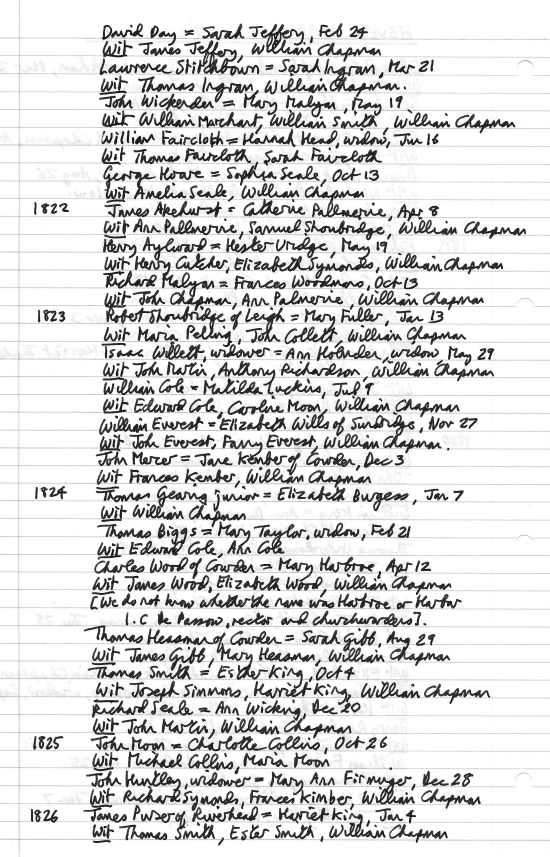 David Day = Sarah Jeffery, Feb 24
Wit James Jeffery, William Chapman
Lawrence Stitchbown = Sarah Ingram, Mar 21
Wit Thomas Ingram, William Chapman.
John Wickenden = Mary Malyan, May 19
Wit William Marchant, William Smith, William Chapman
William Faircloth = Hannah Head, widow, Jun 16
Wit Thomas Faircloth, Sarah Faircloth
George Hoare = Sophia Seale, Oct 13
Wit Amelia Seale, William Chapman
1822 James Akehurst = Catherine Pallmerine, Apr 8
Wit Ann Pallmerine, Samuel Shoubridge, William Chapman
Henry Aylward = Hester Uridge, May 19
Wit Henry Cutcher, Elizabeth Symonds, William Chapman
Richard Malyan = Frances Woodmans, Oct 13
Wit John Chapman, Ann Palmerine, William Chapman
1823 Robert Shoubridge of Leigh = Mary Fuller, Jan 13
Wit Maria Pelling, John Collett, William Chapman
Isaac Willett, widower = Ann Holnden, widow, May 29
Wit John Martin, Anthony Richardson, William Chapman
William Cole = Matilda Luckins, Jul 9
Wit Edward Cole, Caroline Moon, William Chapman
William Everest = Elizabeth Wills of Sundridge, Nov 27
Wit John Everest, Fanny Everest, William Chapman.
John Mercer = Jane Kember of Cowden, Dec 3
Wit Frances Kember, William Chapman
1824 Thomas Gearing junior = Elizabeth Burgess, Jan 7
Wit William Chapman
Thomas Biggs = Mary Taylor, widow, Feb 21
Wit Edward Cole, Ann Cole
Charles Wood of Cowden = Mary Harbroe, Apr 12
Wit James Wood, Elizabeth Wood, William Chapman
[We do not know whether the name was Harbroe or Harbor
I.C De Passow, rector and churchwardens].
Thomas Heasman of Cowden = Sarah Gibb, Aug 29
Wit James Gibb, Mary Heasman, William Chapman
Thomas Smith = Esther King, Oct 4
Wit Joseph Simmons, Harriet King, William Chapman
Richard Seale = Ann Wicking, Dec 20
Wit John Martin, William Chapman
1825 John Moon = Charlotte Collins, Oct 26
Wit Michael Collins, Maria Moon
John Huntley, widower = Mary Ann Firminger, Dec 28
Wit Richard Symonds, Frances Kimber, William Chapman
1826 James Purser of Riverhead = Harriet King, Jan 4
Wit Thomas Smith, Ester Smith, William Chapman